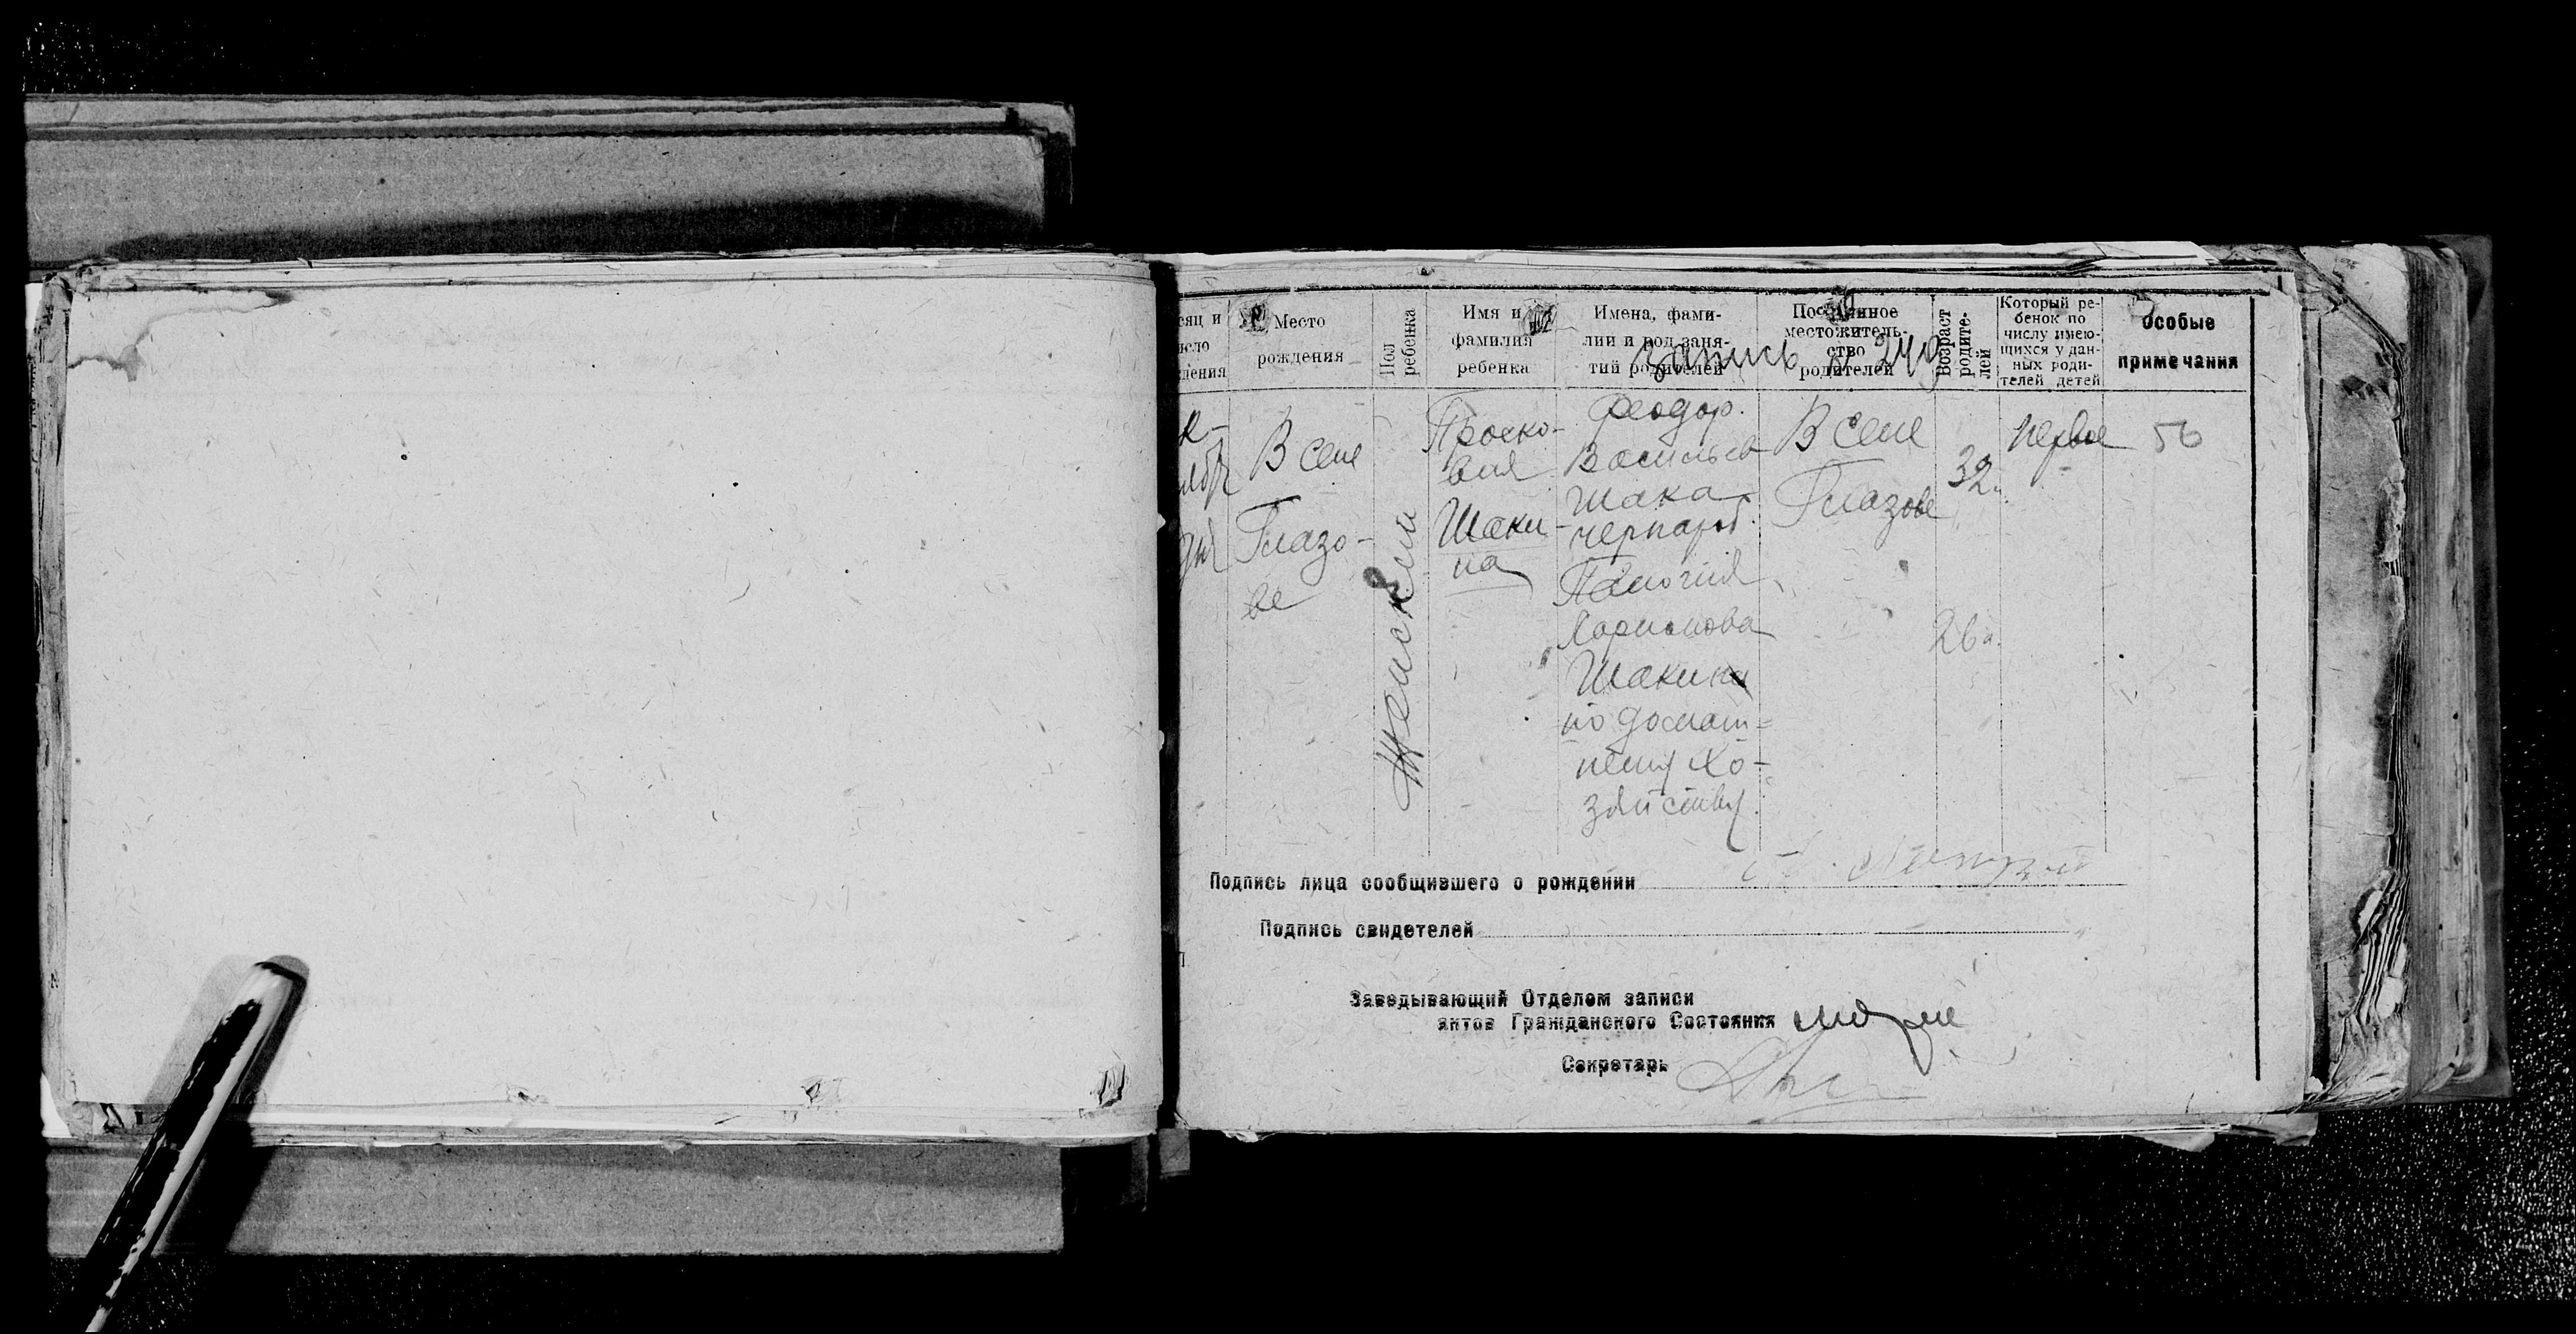 запись № 249
сяц и
исло
дения
Место
рождения
Пол
ребенка
Имя и
фамилия
ребенка
Имена, фами-
лии и род заня-
тий родителей
Постоянное
местожитель-
ство
родителей
Возраст
родите-
лей
Который ре-
бенок по
числу имею-
щихся у дан-
ных роди-
телей детей
Особые
примечания
В селе
Глазо-
ве
Женский
Проско-
вия
Шаки-
на
Феодор.
Васильев
Шака
чернораб.
Лорионова
Шакина
по домаш-
нему хо-
зяйству.
В селе
Глазове
32.
26
первое
50
Подпись лица сообщившего о рождении
Подпись свидетелей
Заведывающий Отделом записи
актов Гражданского Состояния
Секретарь